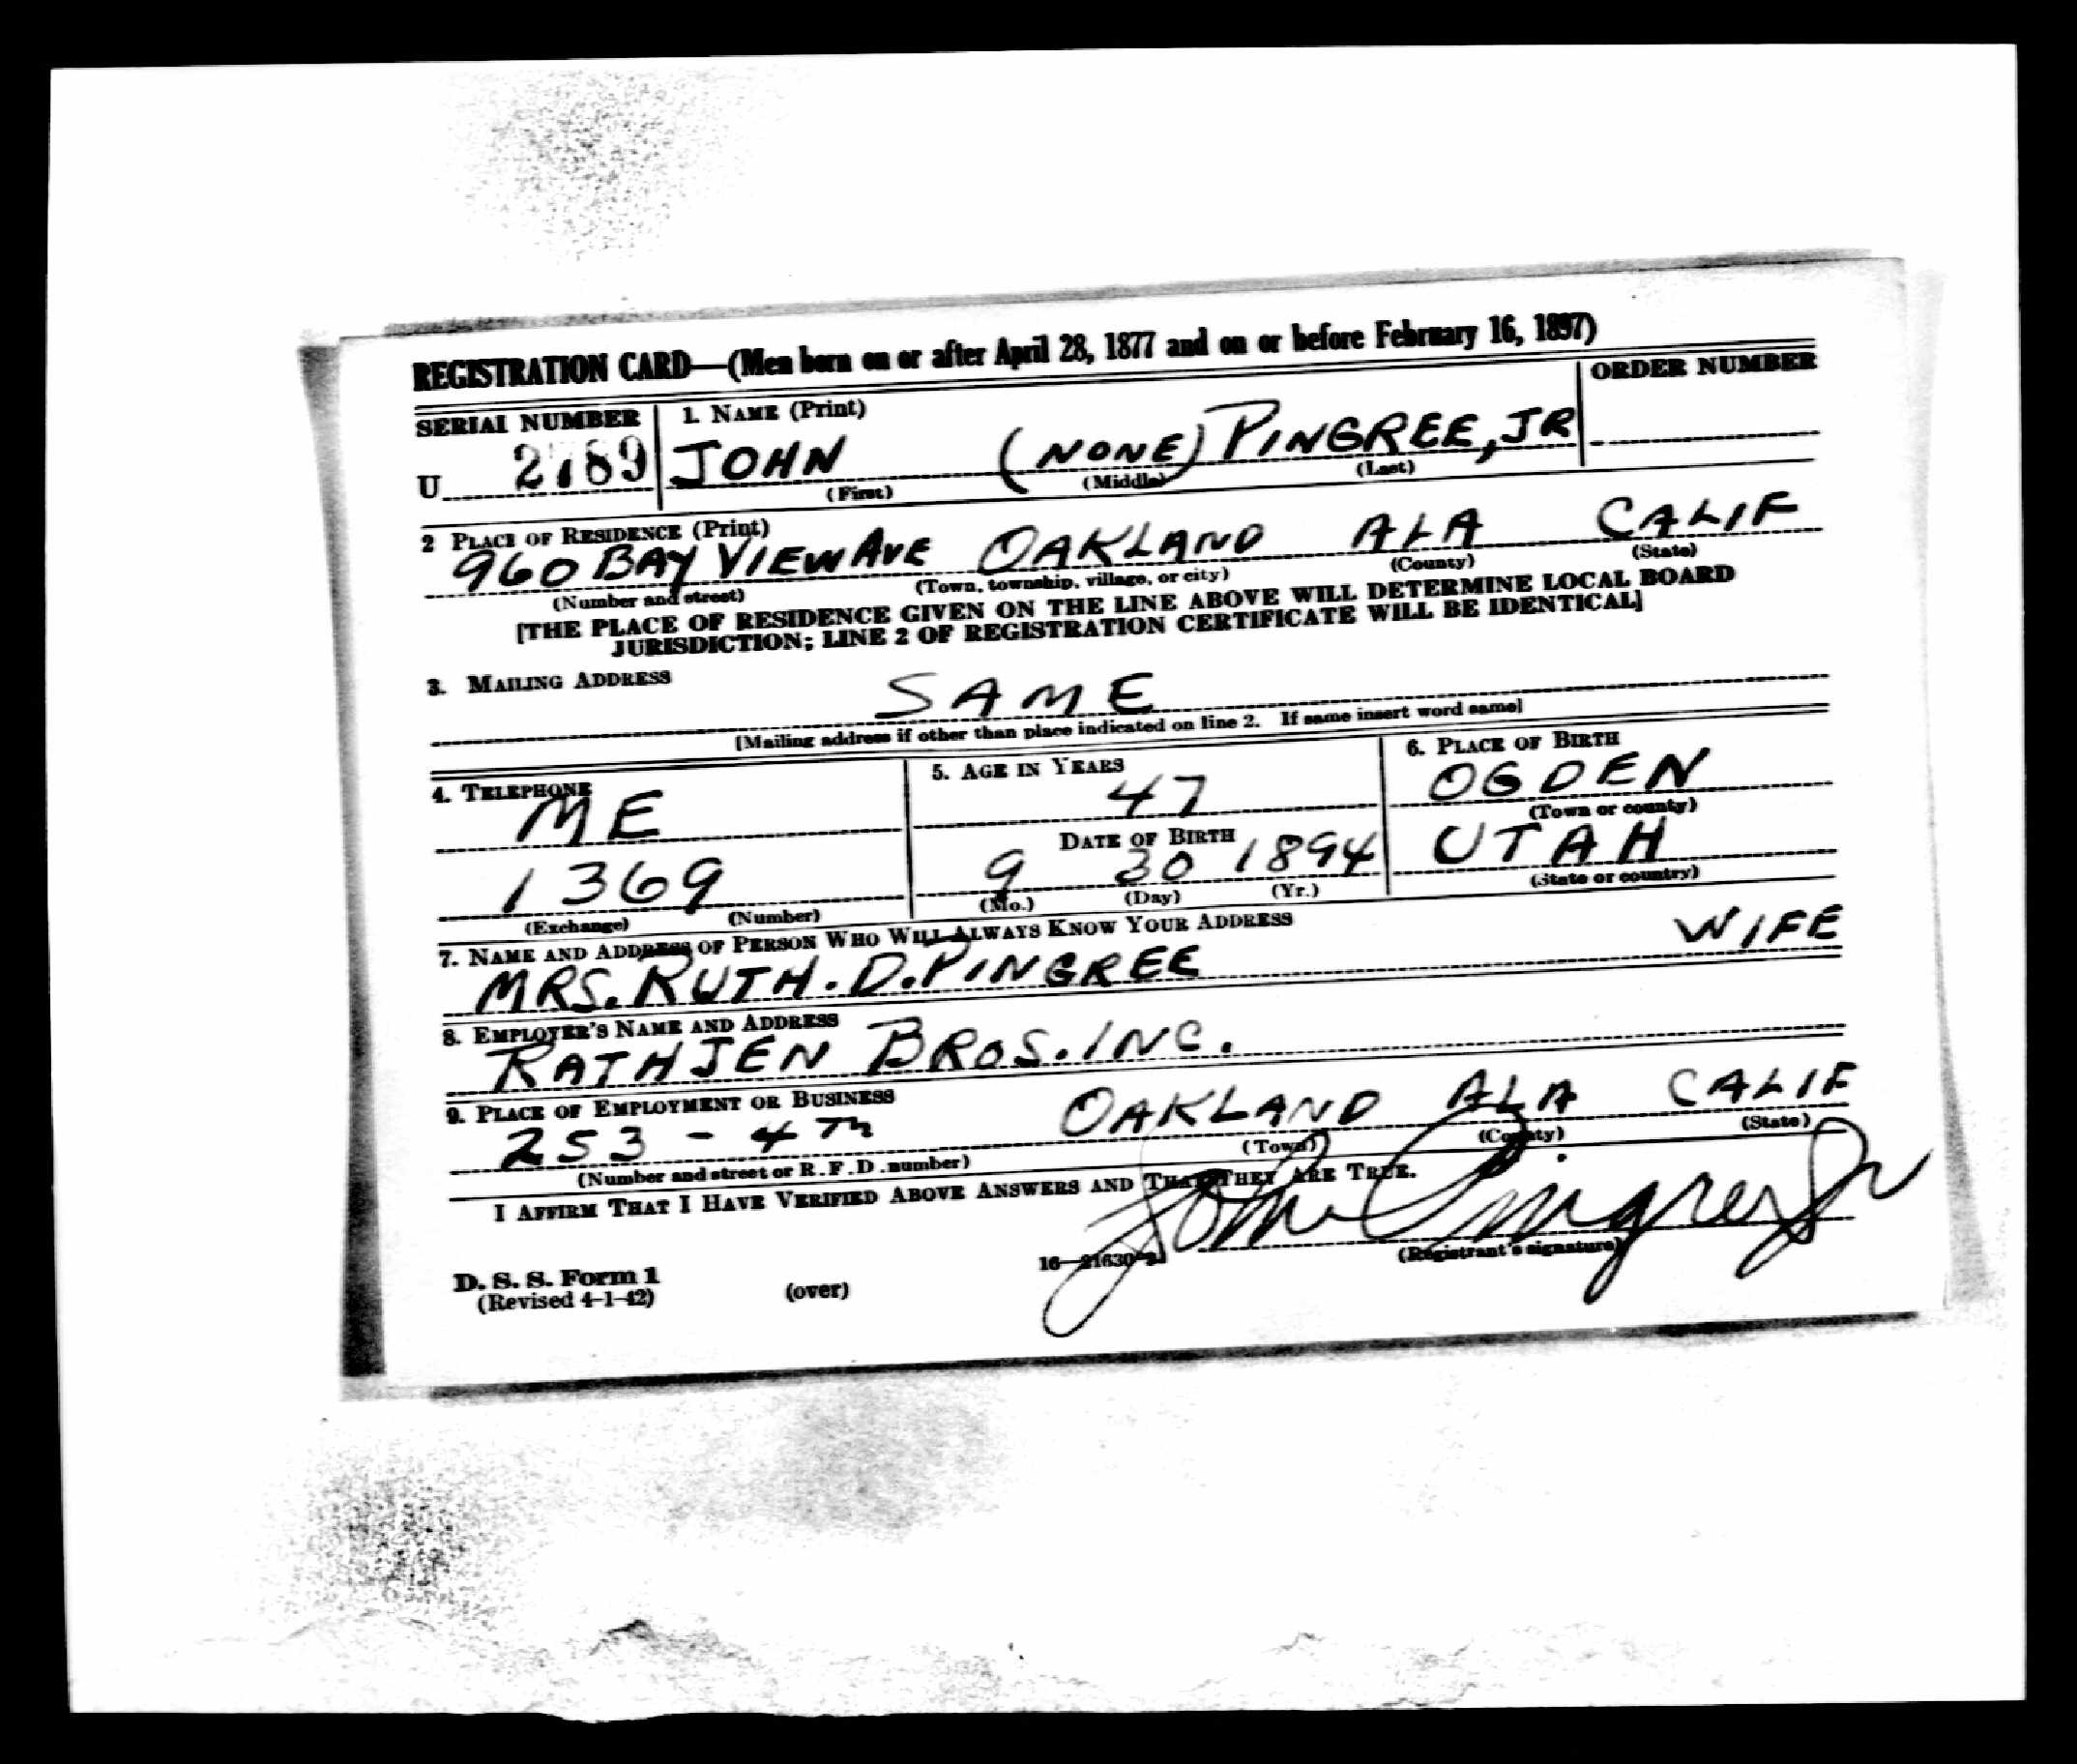 REGISTRATION CARD—(Men born on or after April 28, 1877 and on or before February 16, 1897)
SERIAL NUMBER 1. NAME (Print) ORDER NUMBER
U 2789 JOHN (NONE) PINGREE, JR
(First) (Middle) (Last)
2 PLACE OF RESIDENCE (Print)
960 BAY VIEW AVE OAKLAND ALA CALIF
(Number and street) (Town, township, village, or city) (County) (State)
[THE PLACE OF RESIDENCE GIVEN ON THE LINE ABOVE WILL DETERMINE LOCAL BOARD
JURISDICTION; LINE 2 OF REGISTRATION CERTIFICATE WILL BE IDENTICAL]
3. MAILING ADDRESS
SAME
[Mailing address if other than place indicated on line 2. If same insert word same]
4. TELEPHONE 5. AGE IN YEARS 6. PLACE OF BIRTH
ME 47 OGDEN
(Town or county)
DATE OF BIRTH
1369 9 30 1894 UTAH
(Exchange) (Number) (Mo.) (Day) (Yr.) (State or country)
7. NAME AND ADDRESS OF PERSON WHO WILL ALWAYS KNOW YOUR ADDRESS
MRS. RUTH. D. PINGREE WIFE
8. EMPLOYER'S NAME AND ADDRESS
RATHJEN BROS. INC.
9. PLACE OF EMPLOYMENT OR BUSINESS
253 - 4TH OAKLAND ALA CALIF
(Number and street or R. F. D. number) (Town) (County) (State)
I AFFIRM THAT I HAVE VERIFIED ABOVE ANSWERS AND THAT THEY ARE TRUE.
John Pingree Jr
D. S. S. Form 1 16—21630-2 (Registrant's signature)
(Revised 4-1-42) (over)